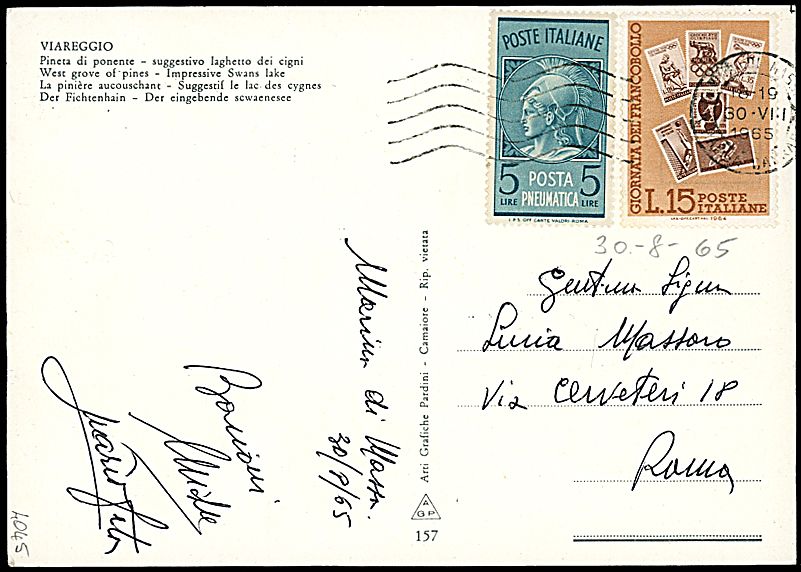 VIAREGGIO
Pineta di ponente - suggestivo laghetto dei cigni
West grove of pines - Impressive Swans lake
La pinière aucouschant - Suggestif le lac des cygnes
Der Fichtenhain - Der eingebende scwaenesee
POSTE ITALIANE
5 LIRE
POSTA PNEUMATICA
5 LIRE
I.P.S. OFF. CARTE VALORI-ROMA
GIORNATA DEL FRANCOBOLLO
L.15 POSTE ITALIANE
1964
19
30-VIII
1965
30-8-65
Lucia Massoro
Via Cerveteri 18
Roma
Marina di Massa.
30/8/65
Arti Grafiche Pardini - Camaiore - Rip. vietata
A
GP
157
4045